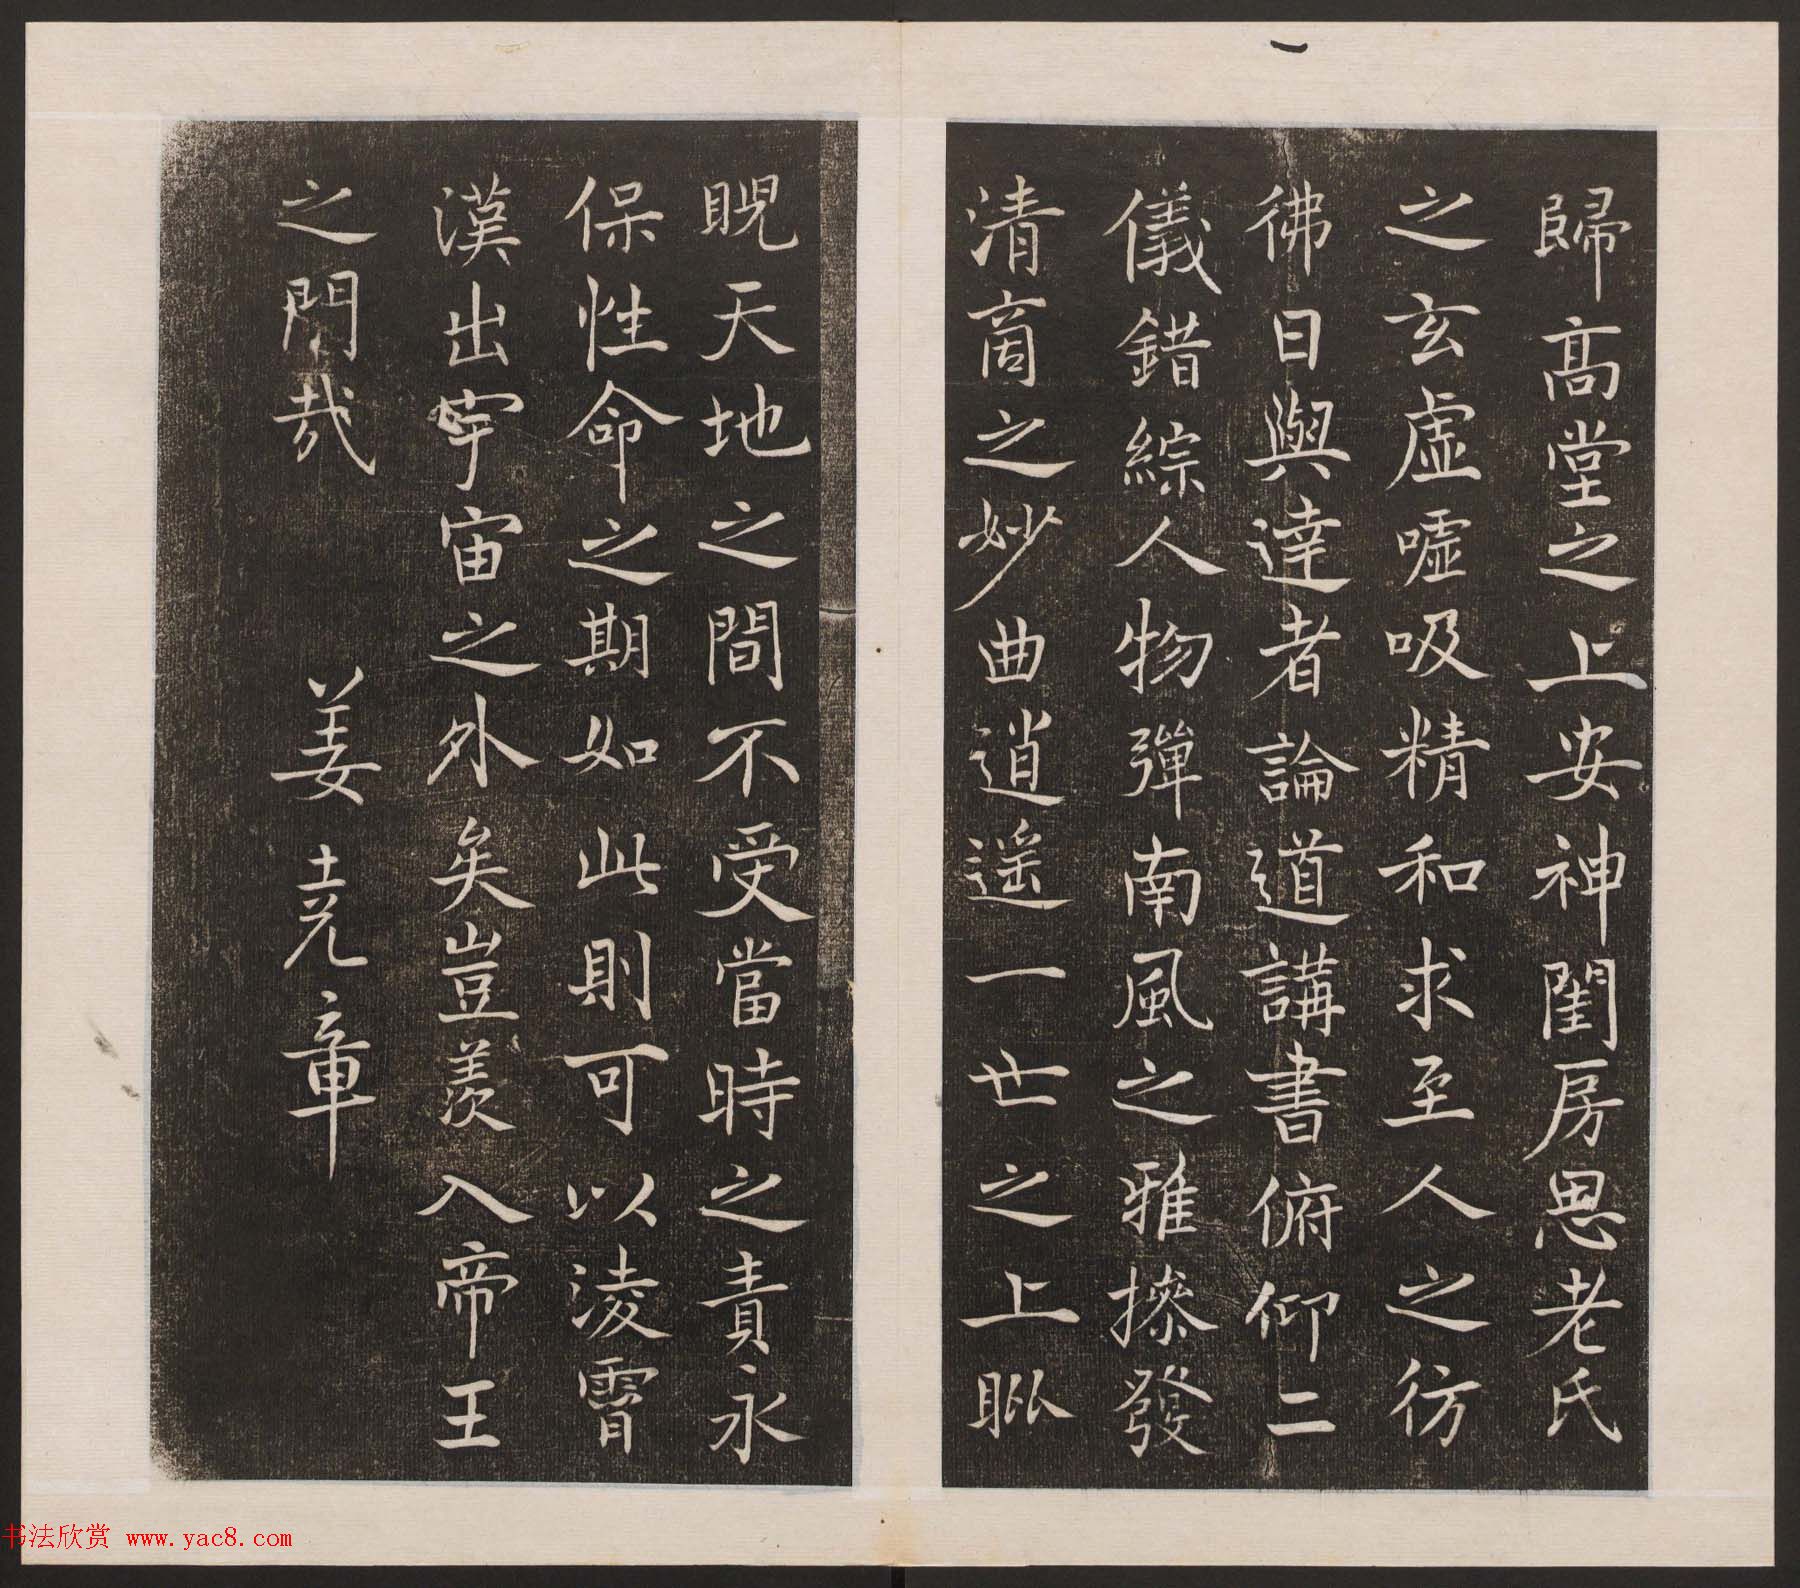 歸高堂之上安神閨房思老氏
之玄虛嘘吸精和求至人之彷
彿日與達者論道講書俯仰二
儀錯綜人物彈南風之雅操發
清商之妙曲逍遥一世之上睥
睨天地之間不受當時之責永
保性命之期如此則可以淩霄
漢出宇宙之外矣豈羨入帝王
之門哉 姜堯章
书法欣赏 www.yac8.com